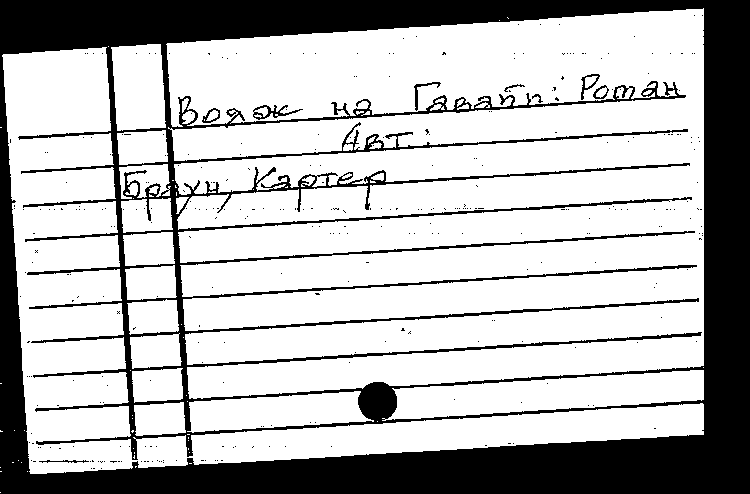 Вояж на Гавайи: Роман
Авт.:
Браун, Картер